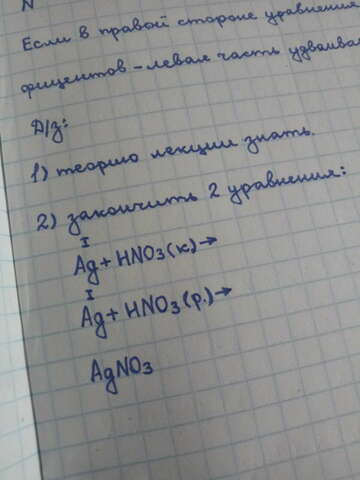 N
Если в правой стороне уравнения
фициентов - левая часть удваива
Д/з:
1) теорию лекции знать.
2) закончить 2 уравнения:
I
Ag + HNO3(к) →
I
Ag + HNO3(р.) →
AgNO3